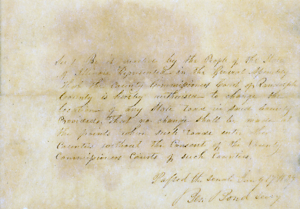 Sec 1 Be it enacted by the People of the State
of Illinois Represented in the General Assembly
That the County Commissioners Court of
County is hereby authorised to change the
location of any State Road in said County
Provided, that no change shall be made at
the points where such Roads enter other
Counties without the Consent of the County
Commissioners Courts of such Counties.
Passed the Senate
Secy